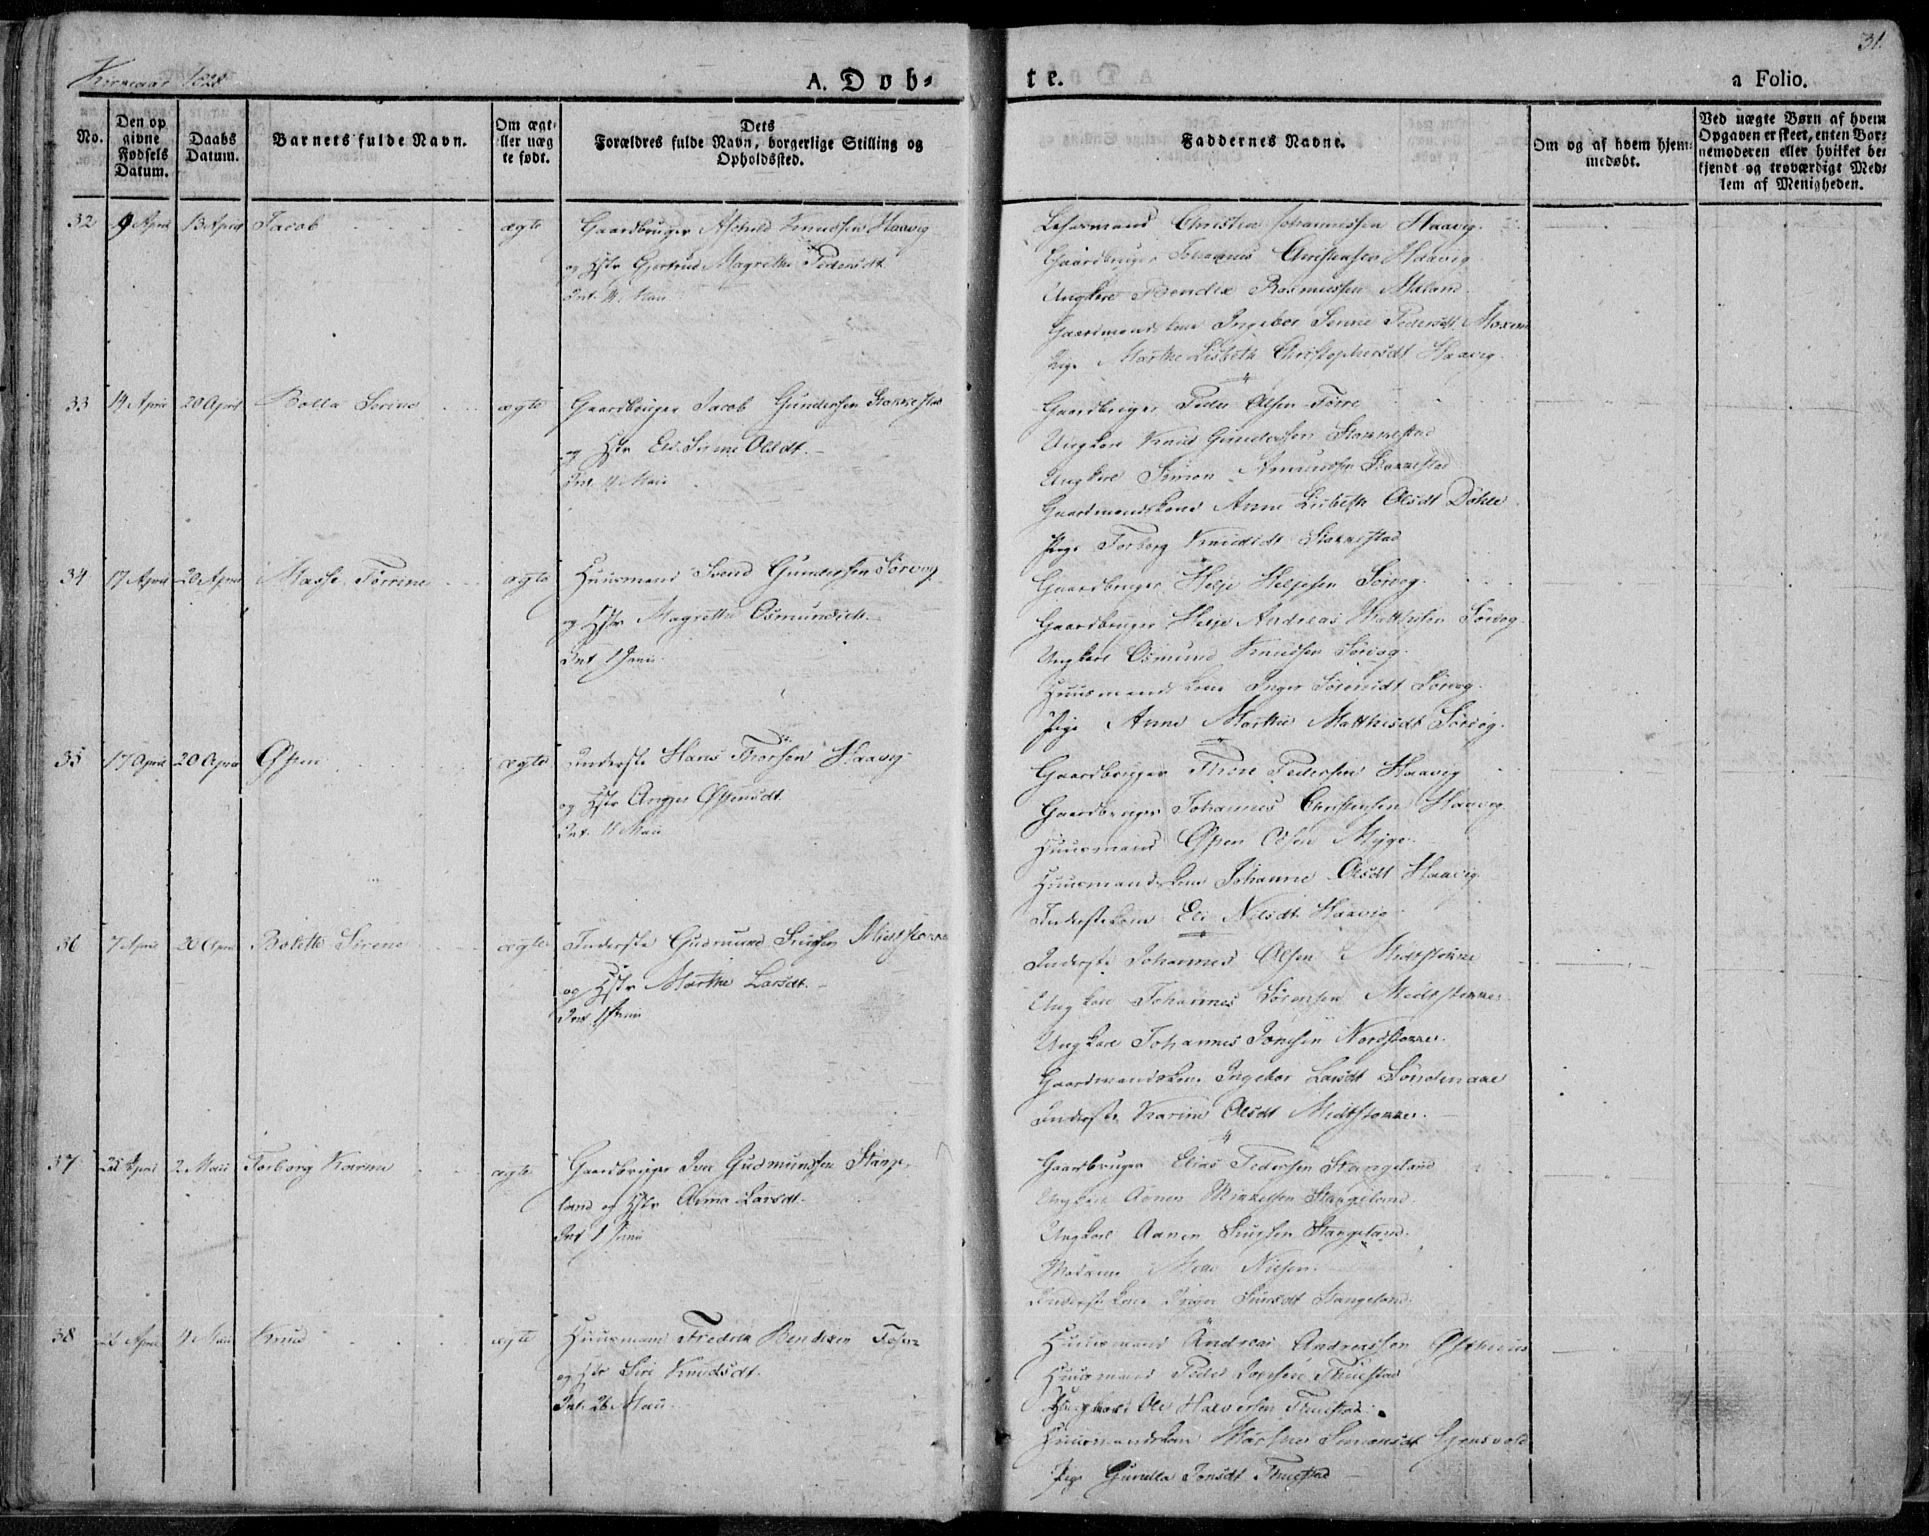 31.
Kirkeaar 1828
A. Døb-
te.
a Folio.
No.
Den op
givne
Fødsels
Datum.
Daabs
Datum.
Barnets fulde Navn.
Om ægt-
eller uæg
te født.
Dets
Forældres fulde Navn, borgerlige Stilling og
Opholdssted.
Faddernes Navne.
Om og af hvem hjem-
medøbt.
Ved uægte Børn af hvem
Opgaven er skeet, enten Bar-
nemoderen eller hvilket be-
kjendt og troværdigt Med-
lem af Menigheden.
32 9 April 13 April Jacob ægte Gaardbruger Knudsen Haavig
og Hstr Gjertrud Magrethe Pedersdt
Int. 11 Maii
Christen Johannessen Haavig.
Gaardbruger Johannes Christensen Haavig
Ungkarl Bendix Rasmussen
Gaardmandskone Ingebor Pedersdt
Pige Marthe Lisbeth Christophersdt Haavig.
33 14 April 20 April Bolla Serine ægte Gaardbruger Jacob Gundersen Stokkestad
og Hstr Eli Serine Olsdt.
Int. 11 Maii
Gaardbruger Peder Olsen
Ungkarl Knud Gundersen Stokkestad
Ungkarl Simon Amundsen Stokkestad
Gaardmandskone Anne Lisbeth Olsdt Dahle
Pige Torborg Knudsdt Stokkestad
34 17 April 20 April Torrine ægte Huusmand Svend Gundersen Sørvog
og Hstr Magrethe Osmundsdt.
Int. 1 Junii
Gaardbruger Helje Heljesen Sørvog.
Gaardbruger Helje Andreas Matthisen Sørvog.
Ungkarl Osmund Knudsen Sørvog.
Huusmandskone Inger Sørensdt Sørvog.
Pige Anne Marthe Matthisdt Sørvog.
35 17 April 20 April Øpen ægte Inderste Hans Thorsen Haavig
og Hstr Øpensdt.
Int. 11 Maii
Gaardbruger Thore Pedersen Haavig
Gaardbruger Johannes Christensen Haavig
Huusmand Øpen Olsen Myge.
Huusmandskone Johanne Olsdt Haavig.
Inderstekone Eli Nilsdt Haavig
36 7 April 20 April Bolette Sirene ægte Inderste Gudmund
og Hstr Marthe Larsdt.
Int. 1 Junii
Inderste Johannes Olsen Midtstokke
Ungkarl Johannes Sørensen Midtstokke.
Ungkarl Johannes Jonesen Nordstokke.
Gaardmandskone Ingebor Larsdt Søndenaae
Inderste Karine Olsdt Midtstokke.
37 April 2 Maii Torborg Karine ægte Gaardbruger Iver Gudmundsen Stange-
land og Hstr Anna Larsdt.
Int 1 Junii
Gaardbruger Elias Pedersen Stangeland
Ungkarl Aanen Mikkelsen Stangeland
Ungkarl Aanen Stangeland.
Madame Nielsen.
Inderstekone Inger Stangeland.
38 April 4 Maii Knud ægte Huusmand Fredrik Bendixen
og Hstr Siri Knudsdt.
Int. 26 Maii
Huusmand Andreas Andreassen Østhuus
Huusmand Peder Thuestad
Ungkarl Ole Halversen Thuestad.
Huusmandskone Marthe Simonsdt
Pige Gunilla Jonsdt Thuestad